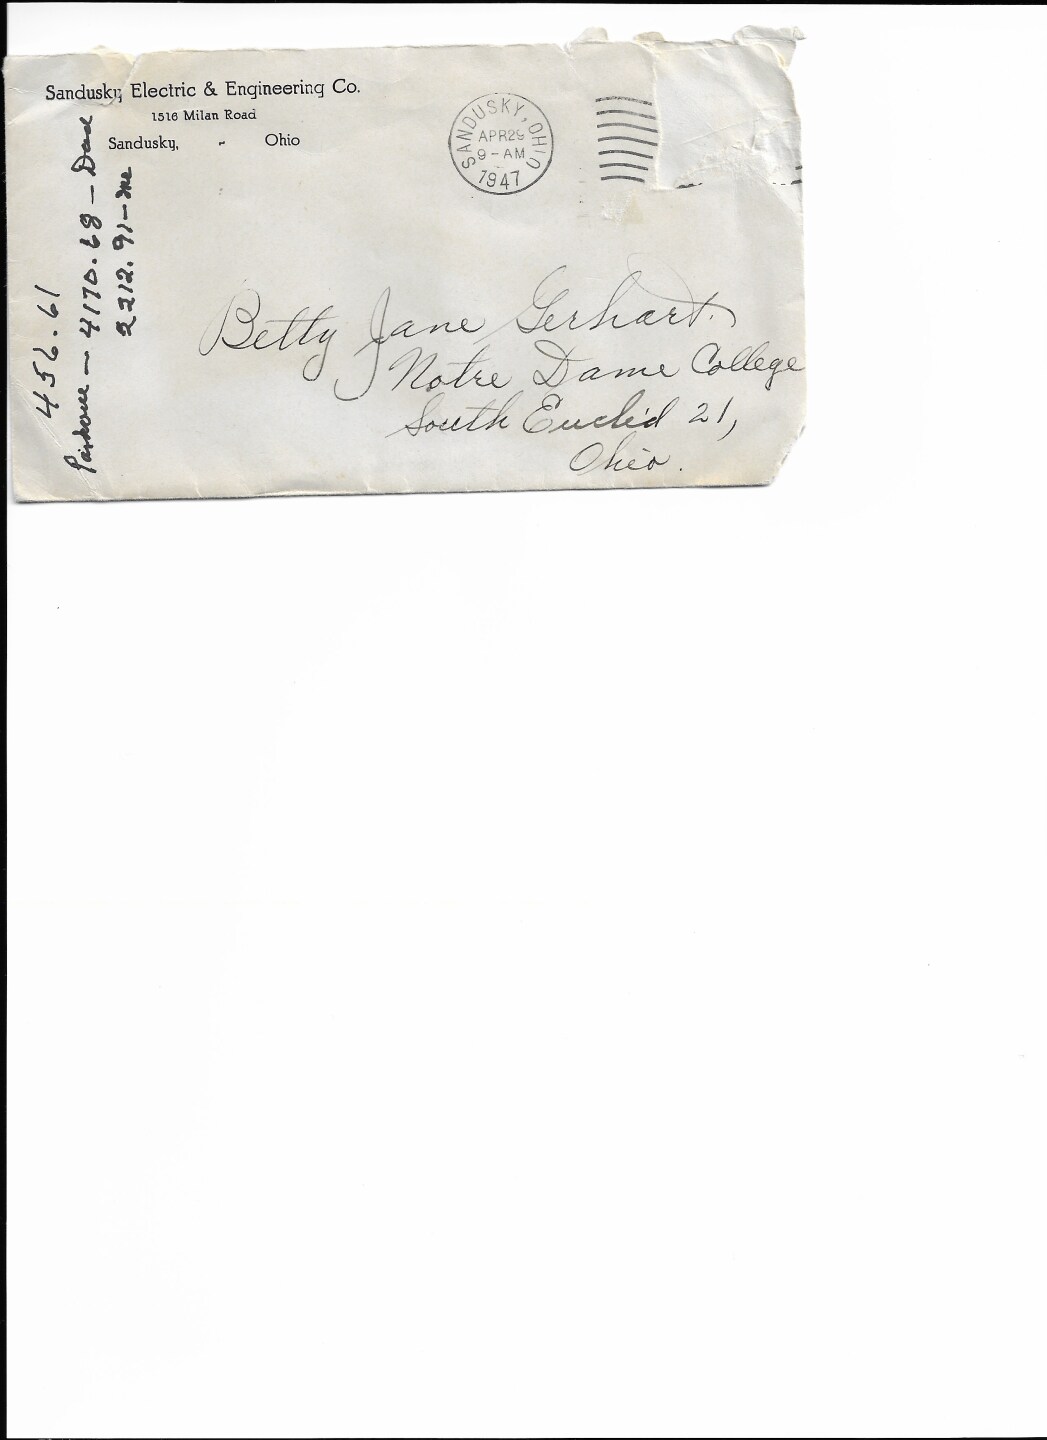 Sandusky Electric & Engineering Co.
1516 Milan Road
Sandusky, - Ohio
SANDUSKY, OHIO
APR 29
9-AM
1947
Betty Jane Gerhart.
Notre Dame College
South Euclid 21,
Ohio.
456.61
— 4170.68 —
2212.91 — me